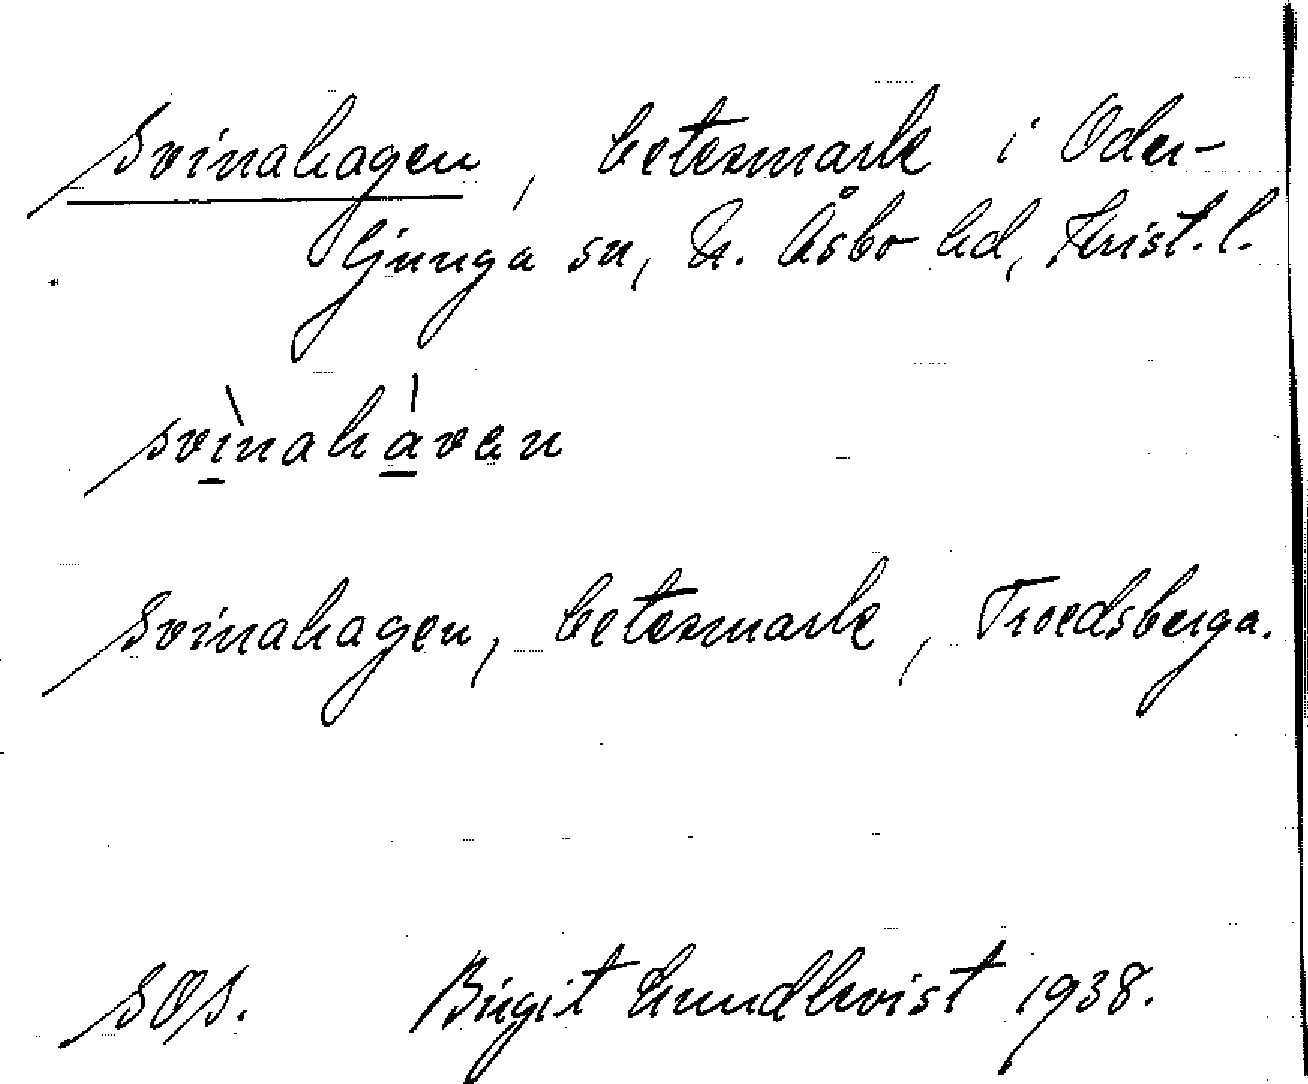 Svinahagen, betesmark i Oder-
ljunga sn, N. Åsbo hd, Krist. l.
svìnaháven
Svinahagen, betesmark, Troedsberga.
SOS. Birgit Lundkvist 1938.